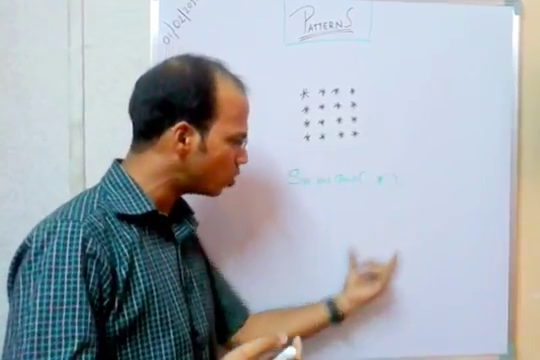 01/02/201
PATTERNS
* * * *
* * * *
* * * *
* * * *